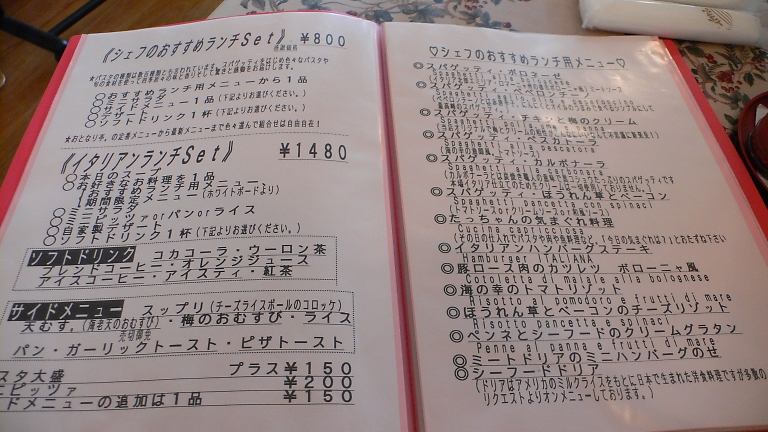 《シェフのおすすめランチSet》 ¥800
○おすすめランチ用メニューから1品
○ミニサラダ
○サイドメニュー1品(下記よりお選びください。)
○デザート
○ソフトドリンク1杯(下記よりお選びください。)
《イタリアンランチSet》 ¥1480
○本日のスープ
○お好きなお料理を1品
(おすすめランチ用メニュー
期間限定メニュー(ホワイトボードより)
○ミニサラダ
○ミニピッツァorパンorライス
○自家製デザート
○ソフトドリンク1杯(下記よりお選びください。)
ソフトドリンク コカコーラ・ウーロン茶
ブレンドコーヒー・オレンジジュース
アイスコーヒー・アイスティ・紅茶
サイドメニュー スップリ(チーズライスボールのコロッケ)
天むす(海老天のおむすび)・梅のおむすび・ライス
売切御免
パン・ガーリックトースト・ピザトースト
スタ大盛 プラス¥150
ニピッツァ ¥200
ドメニューの追加は1品 ¥150
♡シェフのおすすめランチ用メニュー♡
◎スパゲッティ・ボロネーゼ
◎スパゲッティ・チキンと梅のクリーム
◎スパゲッティ・ペスカトーラ
Spaghetti alla pescatora
◎スパゲッティ・カルボナーラ
Spaghetti alla carbonara
◎スパゲッティ・ほうれん草とベーコン
Spaghetti pancetta con spinaci
(トマトソースorクリームソースor和風ソース)
◎たっちゃんの気まぐれ料理
Cucina capricciosa
(その日の仕入れでパスタや肉や魚料理など、「今日の気まぐれは?」とおたずね下さい
◎イタリアンハンバーグステーキ
Hamburger ITALIANA
◎豚ロース肉のカツレツ ボローニャ風
Cotoletta di maiale alla bolognese
◎海の幸のトマトリゾット
Risotto al pomodoro e frutti di mare
◎ほうれん草とベーコンのチーズリゾット
Risotto pancetta e spinaci
◎ペンネとシーフードのクリームグラタン
Penne alla panna e frutti di mare
◎ミートドリアのミニハンバーグのせ
◎シーフードドリア
(ドリアはアメリカのミルクライスをもとに日本で生まれた洋食料理ですが多数の
リクエストよりオンメニューしております。)